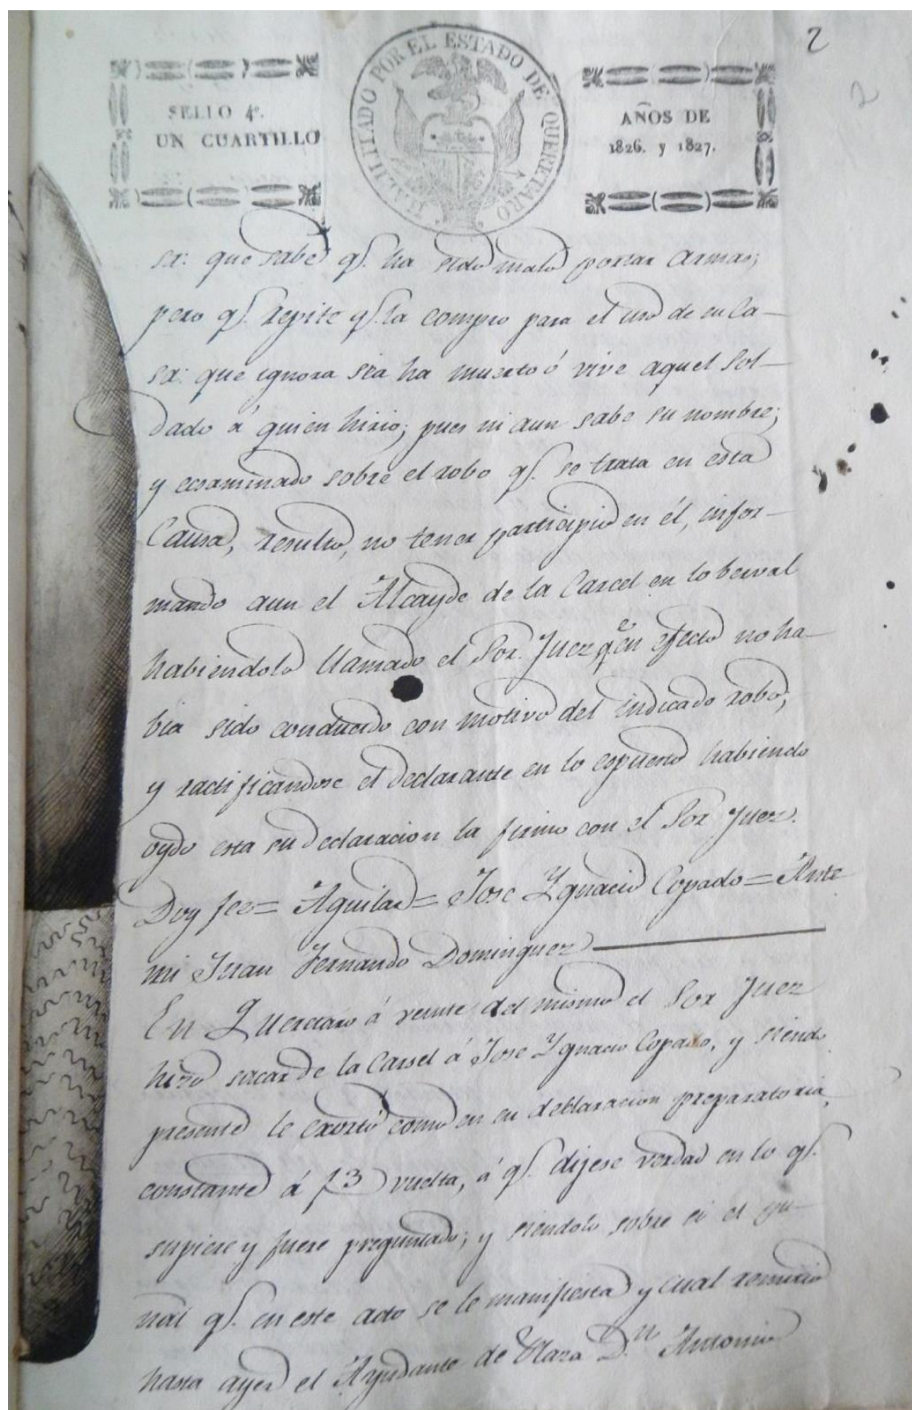 2
2
SELLO 4º.
UN CUARTILLO
HABILITADO POR EL ESTADO DE QUERETARO
AÑOS DE
1826. y 1827.
sa: que sabe q.^e ha sido malo portar armas;
pero q.^e repite q.^e la compro para el uso de su ca-
sa: que ignora si ha muerto ó vive aquel Sol-
dado á quien hirio; pues ni aun sabe su nombre;
y ecsaminado sobre el robo q.^e se trata en esta
Causa, resultó, no tener participio en él, infor-
mando aun el Alcayde de la Carcel en lo berval
habiendolo llamado el Sor. Juez q.^e en efecto no ha-
bia sido conducido con motivo del indicado robo,
y ractificandose el declarante en lo espuesto habiendo
oydo esta su declaracion la firmo con el Sor Juez.
Doy fee= Aguilar= Jose Ygnacio Copado= Ante
mi Juan Fernando Dominguez
En Queretaro á veinte del mismo el Sor Juez
hizo sacar de la Carsel á Jose Ygnacio Copado, y siendo
presente le exortó como en su declaracion preparatoria,
constante á f3 vuelta, á q.^e dijese verdad en lo q.^e
supiere y fuere preguntado; y siendolo sobre si el pu-
ñal q.^e en este acto se le manifiesta y cual remitio
hasta ayer el Ayudante de Plaza D.^n Antonio